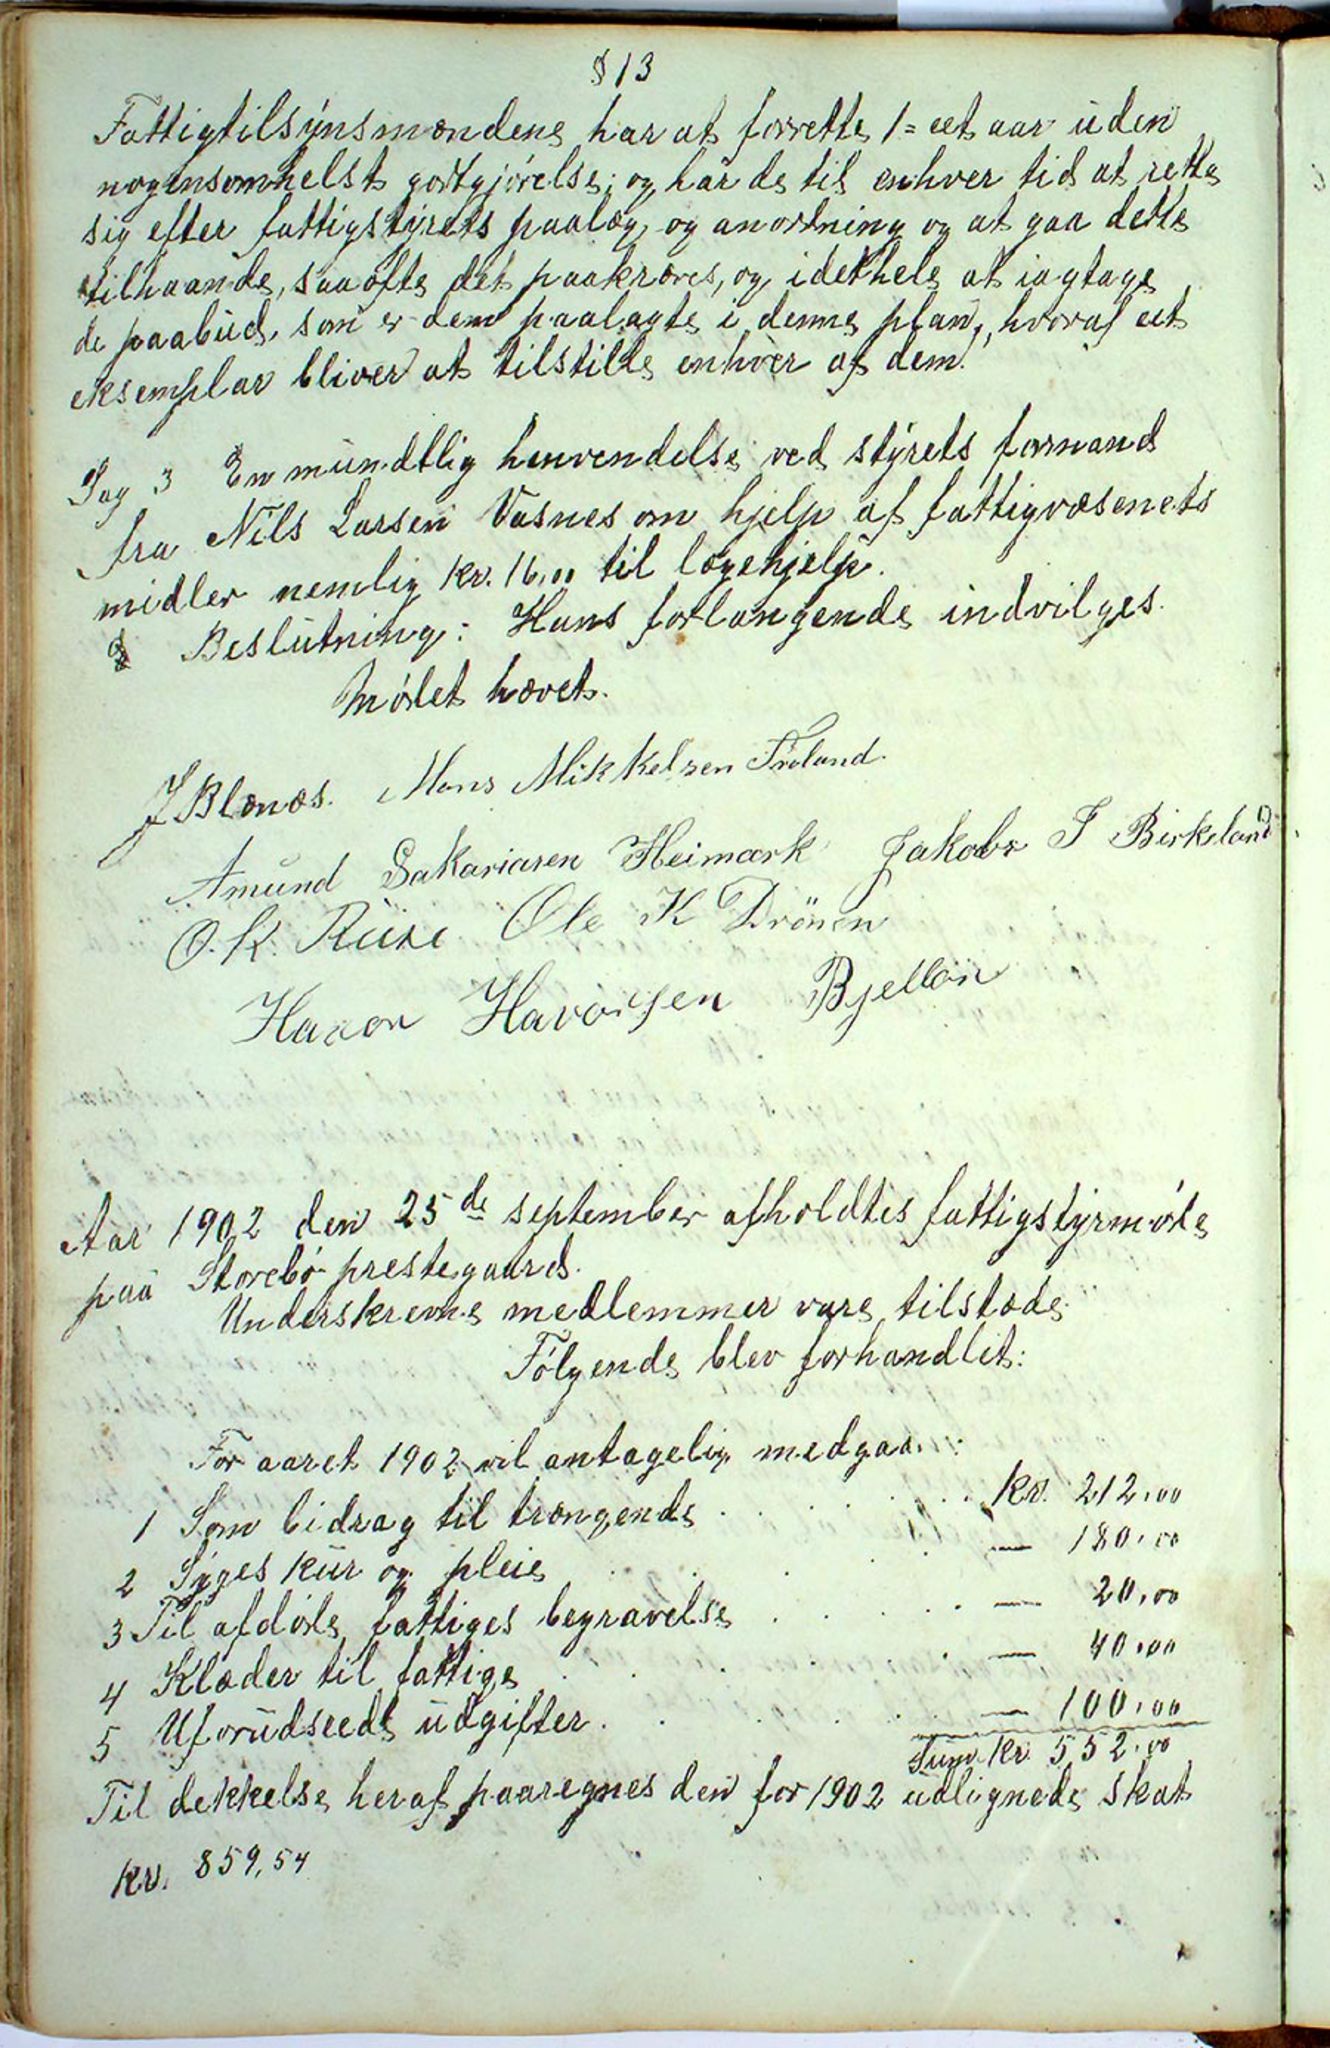 § 13
Fattigtilsynsmændene har at forrette 1 = eet aar uden
nogensomhelst godtgjörelse; og har de til enhver tid at rette
sig efter fattigstyrets paalæg og anordning og at gaa dette
tilhaande, saa ofte det paakræves, og idethele at iagtage
de paabud, som er dem paalagte i denne plan, hvoraf eet
eksemplar bliver at tilstille enhver af dem.
Sag 3 En mundtlig henvendelse ved styrets formand
fra Nils Larsen Vasnes om hjelp af fattigvæsenets
midler nemlig kr. 16,00 til lægehjelp.
Beslutning: Hans forlangende indvilges.
Mödet hævet.
J Blænæs. Mons Mikkelsen Fröland.
Amund Sakariasen Heimark Jakob J Birkeland
O. K. Rüse Ole K Drönen
Havor Havorsen Bjelloen
Aar 1902 den 25de september afholdtes fattigstyrmöte
paa Storebö prestegaard.
Underskrevne medlemmer vare tilstæde
Fölgende blev forhandlet:
For aaret 1902 vil antagelig medgaa:
1 Som bidrag til trængende . . . . . . . kr. 212,00
2 Syges kur og pleie . . . . — 180,00
3 Til afdöde fattiges begravelse . . . . . — 20,00
4 Klæder til fattige . . . . . — 40,00
5 Uforudseede udgifter . . . . . — 100,00
Sum kr 552,00
Til dekkelse heraf paaregnes den for 1902 udlignede skat
kr. 859,54